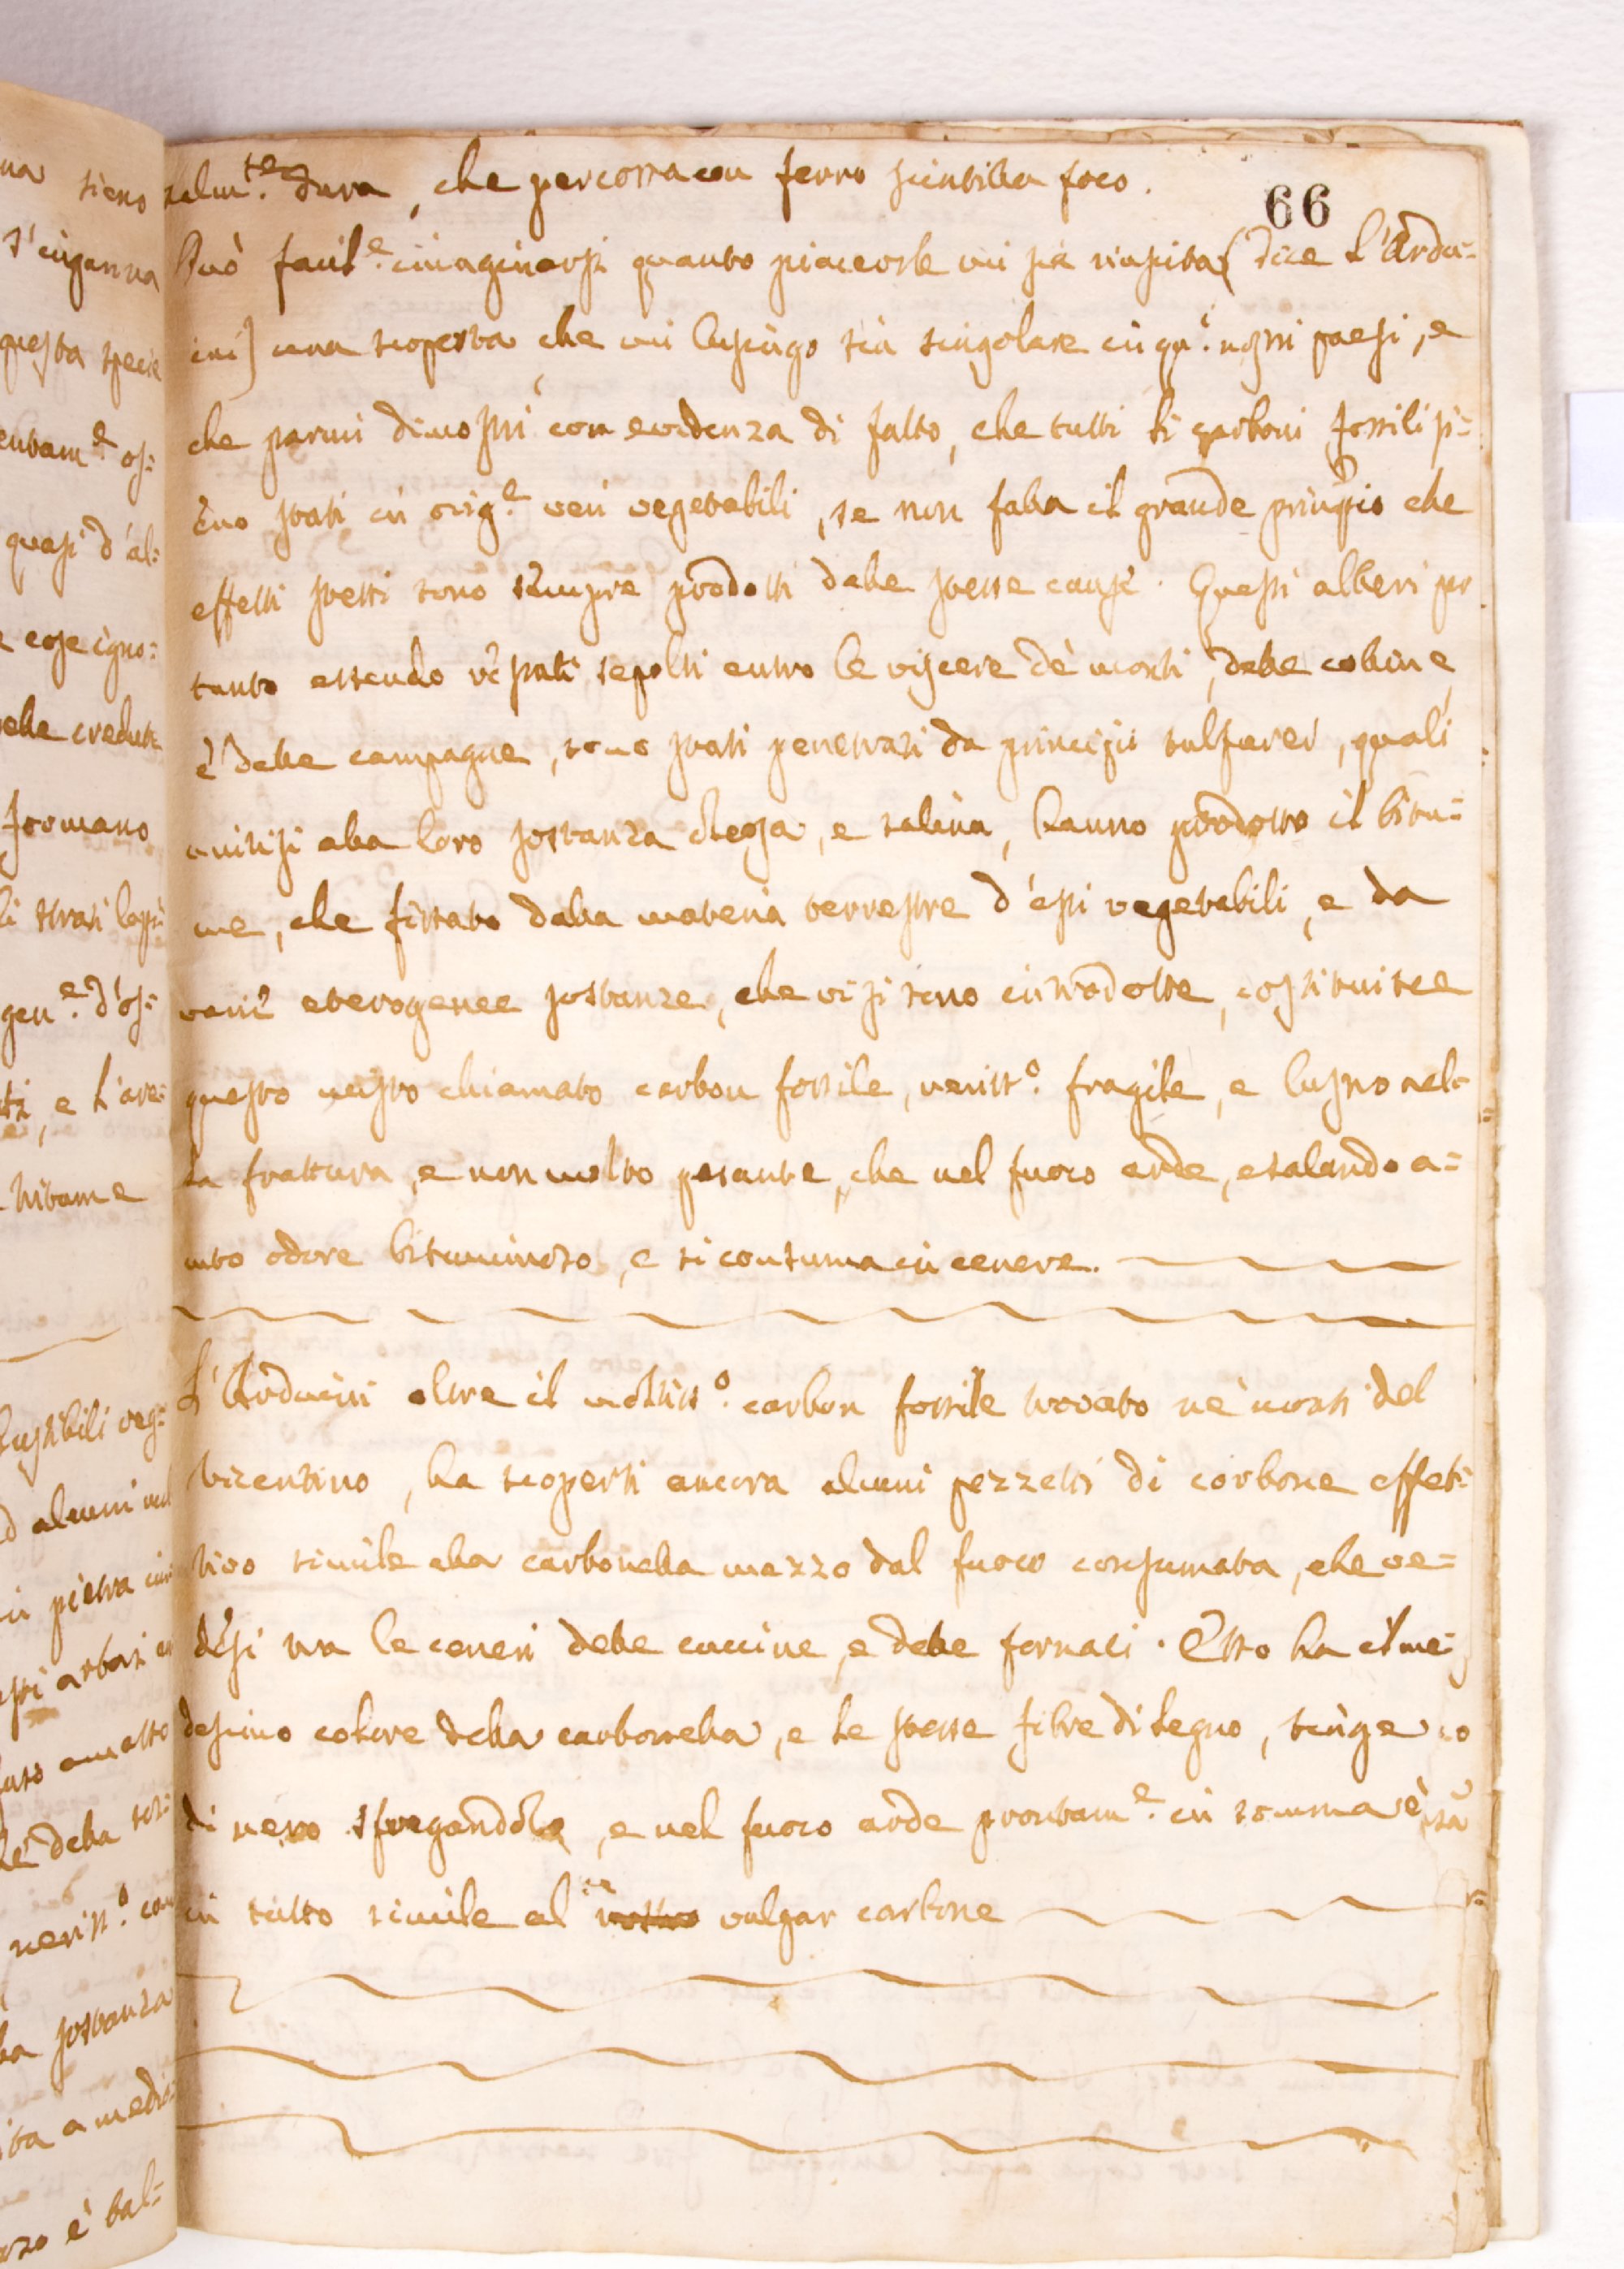 66
talm.te dura, che percossa con ferro scintilla foco.
Può facil.e imaginarsi quanto piacevole mi sia riuscita (dice l'Ardui=
ini) una scoperta, che mi lusingo sia singolare in qu.i nostri paesi, e
che parmi dimostri con evidenza di fatto, che tutti li carboni fossili si=
èno stati in orig.e veri vegetabili, se non falla il grande principio che
effetti stessi sono sempre prodotti dalle stesse cause. Questi alberi per
tanto essendo vi stati sepolti entro le viscere de' monti, delle colline,
e delle campagne, sono stati penetrati da principii sulfurei, quali
unitisi alla loro sostanza oleosa, e salina, hanno prodotto il bitu=
me, che fissato dalla materia terrestre d'essi vegetabili, e da
varie eterogenee sostanze, che vi si sono introdotte, costituisce
questo nostro chiamato carbon fossile, neriss.o fragile, e lustro nel=
la frattura, e non molto pesante, che nel fuoco arde, esalando a=
cuto odore bituminoso, e si consuma in cenere.
L'Arduini oltre il moltiss.o carbon fossile trovato ne' monti del
Vicentino, ha scoperti ancora alcuni pezzetti di carbone effet=
tivo simile alla carbonella mezzo dal fuoco consumata, che ve=
desi tra le ceneri delle cuccine, e delle fornaci. Esso ha il me=
desimo colore della carbonella, e le stesse fibre di legno, tinge
di nero sfregandola, e nel fuoco arde prontam.e in somma è
in tutto simile al nostro vulgar carbone